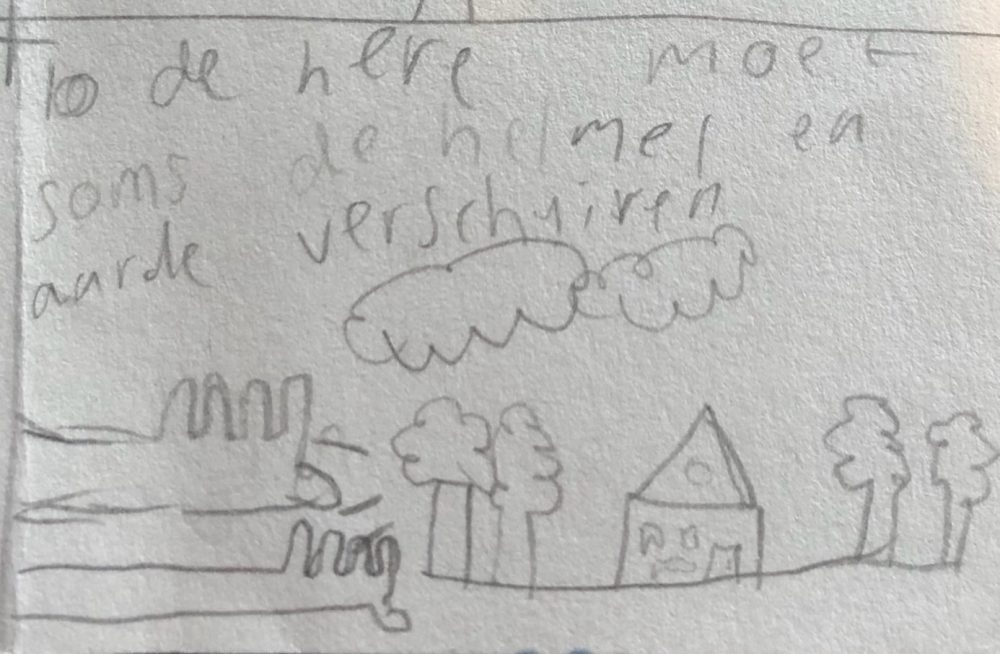 10 de here moet
soms de helmel en
aarde verschuiren